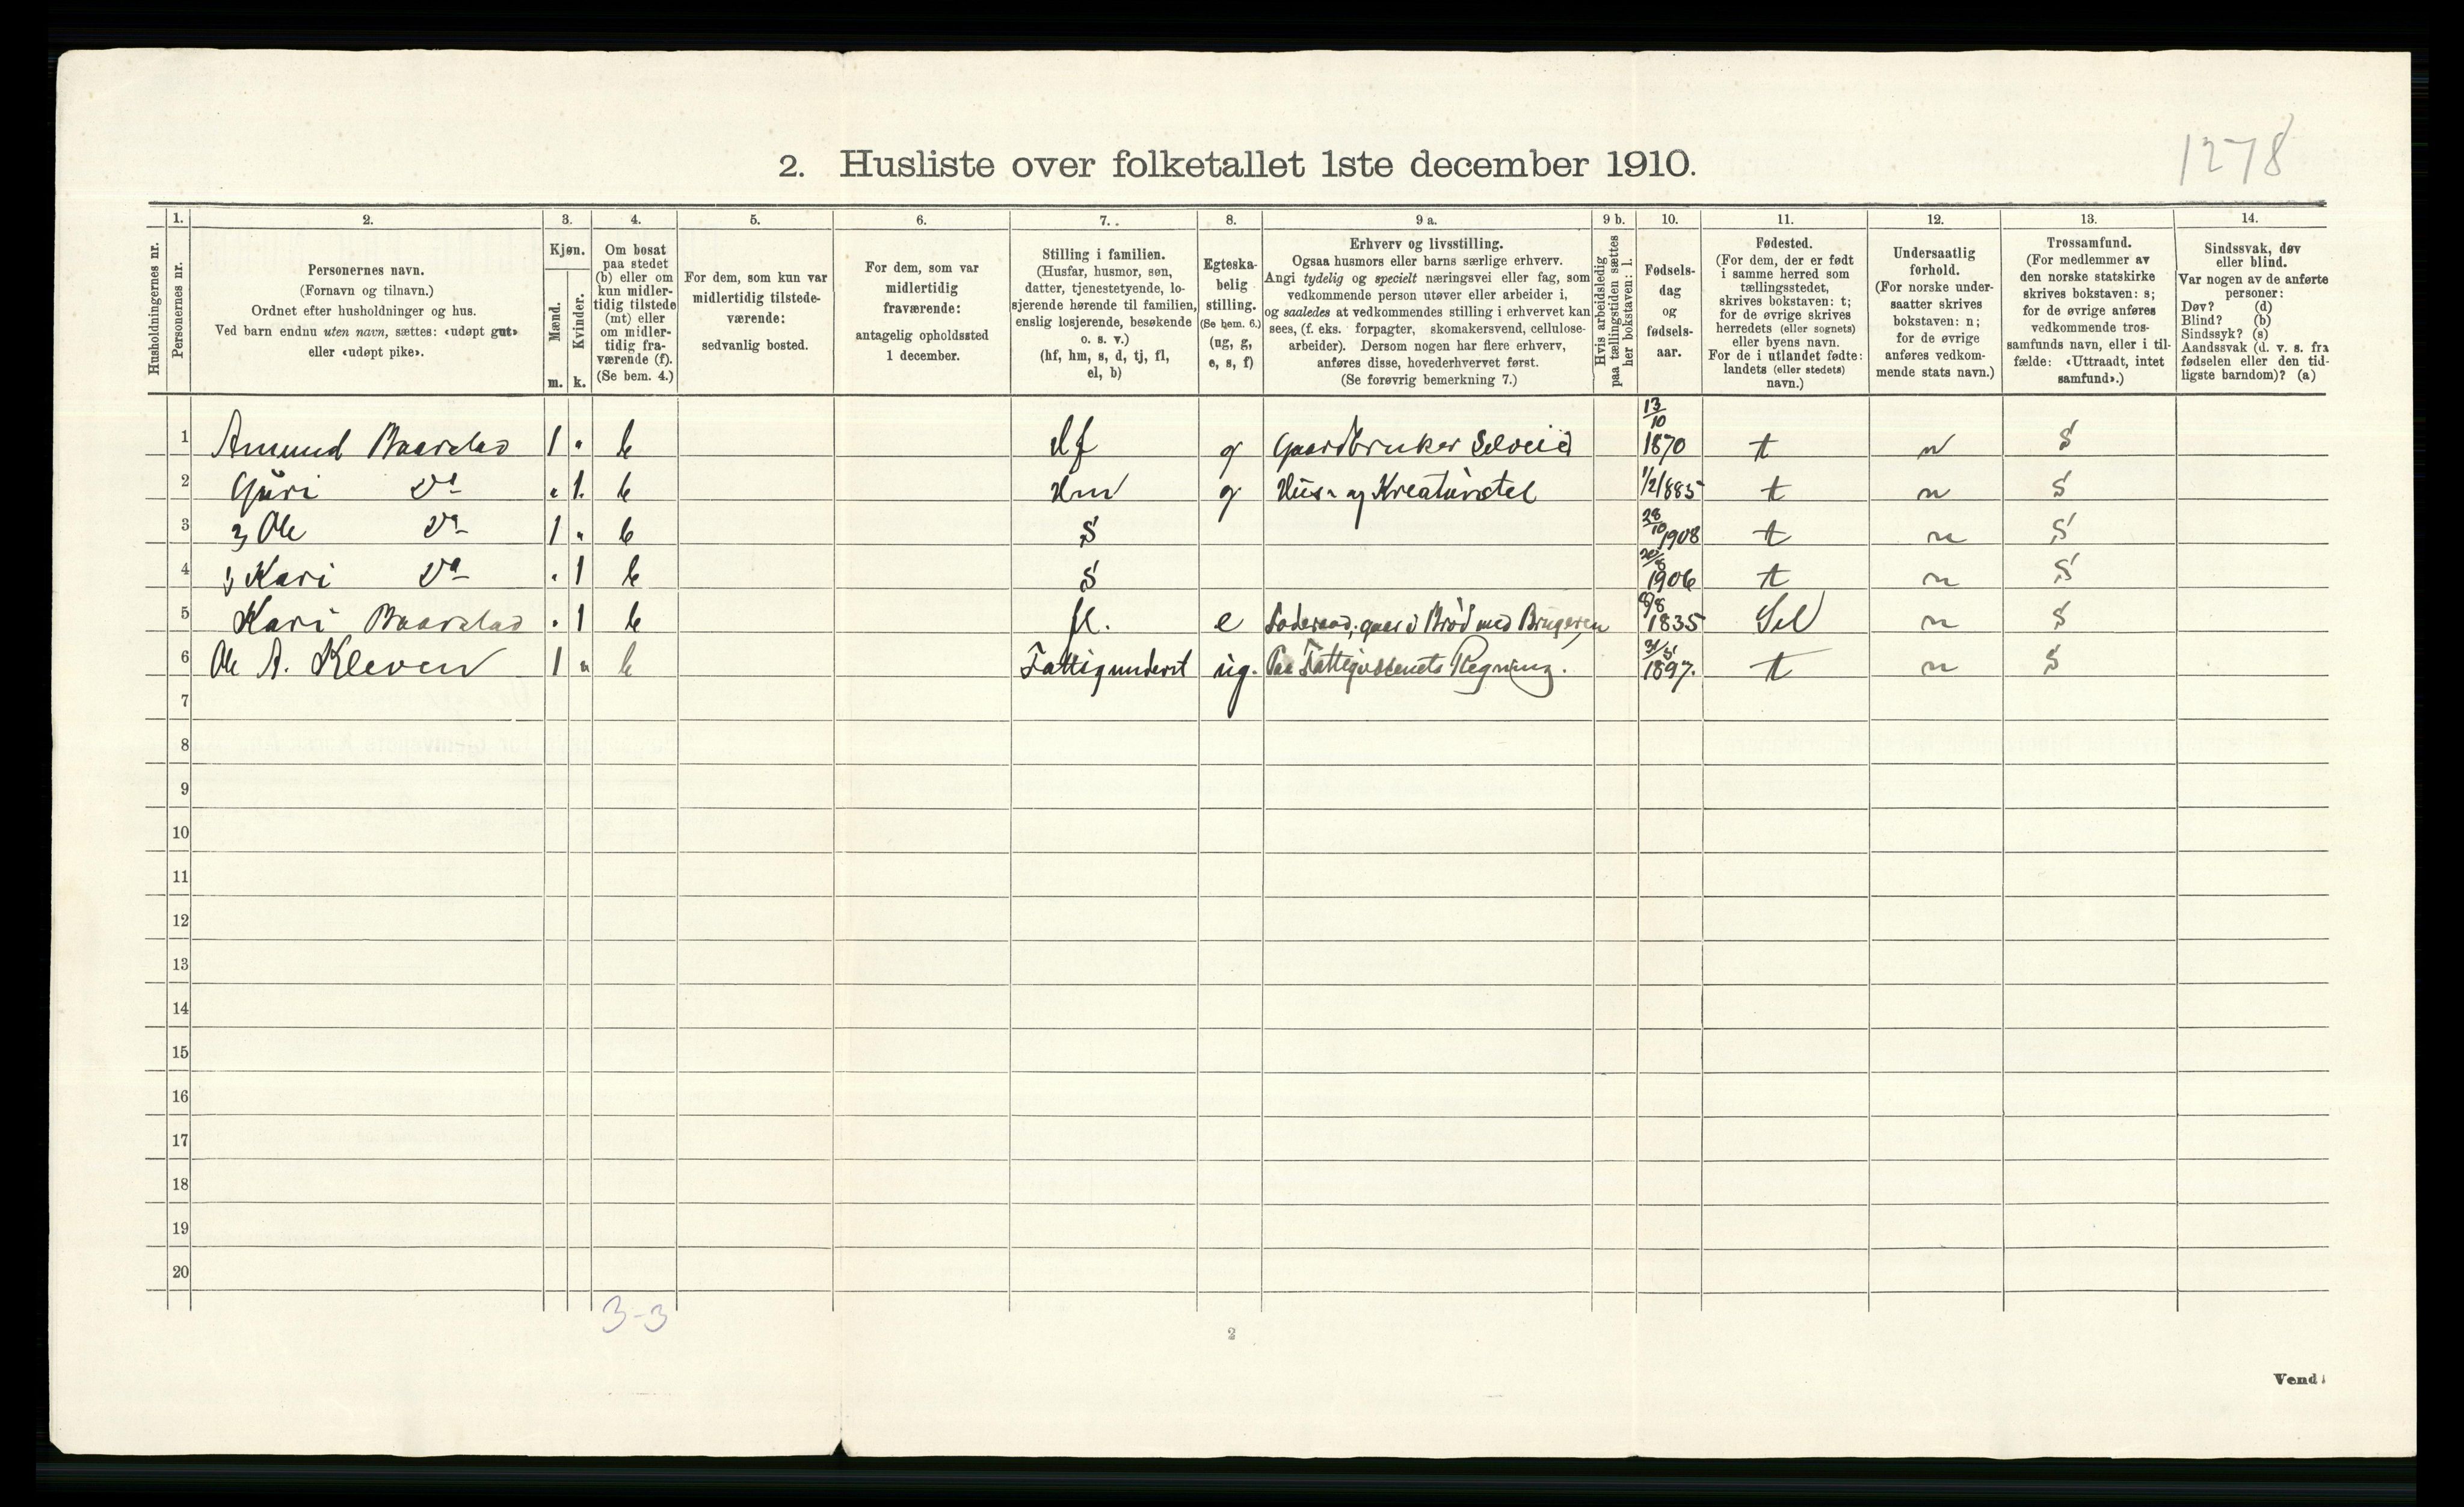 1278
2. Husliste over folketallet 1ste december 1910.
Husholdningernes nr.
1.
Personernes nr.
2.
Personernes navn.
(Fornavn og tilnavn.)
Ordnet efter husholdninger og hus.
Ved barn endnu uten navn, sættes: «udøpt gut»
eller «udøpt pike».
3.
Kjøn.
Mænd.
Kvinder.
m. k.
4.
Om bosat
paa stedet
(b) eller om
kun midler-
tidig tilstede
(mt) eller
om midler-
tidig fra-
værende (f).
(Se bem. 4.)
5.
For dem, som kun var
midlertidig tilstede-
værende:
sedvanlig bosted.
6.
For dem, som var
midlertidig
fraværende:
antagelig opholdssted
1 december.
7.
Stilling i familien.
(Husfar, husmor, søn,
datter, tjenestetyende, lo-
sjerende hørende til familien,
enslig losjerende, besøkende
o. s. v.)
(hf, hm, s, d, tj, fl,
el, b)
8.
Egteska-
belig
stilling.
(Se bem. 6.)
(ug, g,
e, s, f)
9 a.
Erhverv og livsstilling.
Ogsaa husmors eller barns særlige erhverv.
Angi tydelig og specielt næringsvei eller fag, som
vedkommende person utøver eller arbeider i,
og saaledes at vedkommendes stilling i erhvervet kan
sees, (f. eks. forpagter, skomakersvend, cellulose-
arbeider). Dersom nogen har flere erhverv,
anføres disse, hovederhvervet først.
(Se forøvrig bemerkning 7.)
9 b.
Hvis arbeidsledig
paa tællingstiden sættes
her bokstaven: l.
10.
Fødsels-
dag
og
fødsels-
aar.
11.
Fødested.
(For dem, der er født
i samme herred som
tællingsstedet,
skrives bokstaven: t;
for de øvrige skrives
herredets (eller sognets)
eller byens navn.
For de i utlandet fødte:
landets (eller stedets)
navn.)
12.
Undersaatlig
forhold.
(For norske under-
saatter skrives
bokstaven: n;
for de øvrige
anføres vedkom-
mende stats navn.)
13.
Trossamfund.
(For medlemmer av
den norske statskirke
skrives bokstaven: s;
for de øvrige anføres
vedkommende tros-
samfunds navn, eller i til-
fælde: «Uttraadt, intet
samfund».)
14.
Sindssvak, døv
eller blind.
Var nogen av de anførte
personer:
Døv? (d)
Blind? (b)
Sindssyk? (s)
Aandssvak (d. v. s. fra
fødselen eller den tid-
ligste barndom)? (a)
1 Amund Baarstad 1 " b Hf g Gaardbruker Selveie 13/10 1870 t n S
2 Guri Do " 1. b Hm g Hus- og Kreaturstel 1/2 1885 t n S
3 Ole Do 1 " b S 28/10 1908 t n S
4 Kari Do " 1 b S 1906 t n S
5 Kari Baarstad " 1 b fl. e Brød med Brugeren 8/8 1835 Sel n S
6 Ole A. Kleven 1 " b Fattigunderst ug. Paa Fattigvæsenets Regning. 31/5 1897. t n S
7
8
9
10
11
12
13
14
15
16
17
18
19
20
3-3
2
Vend!